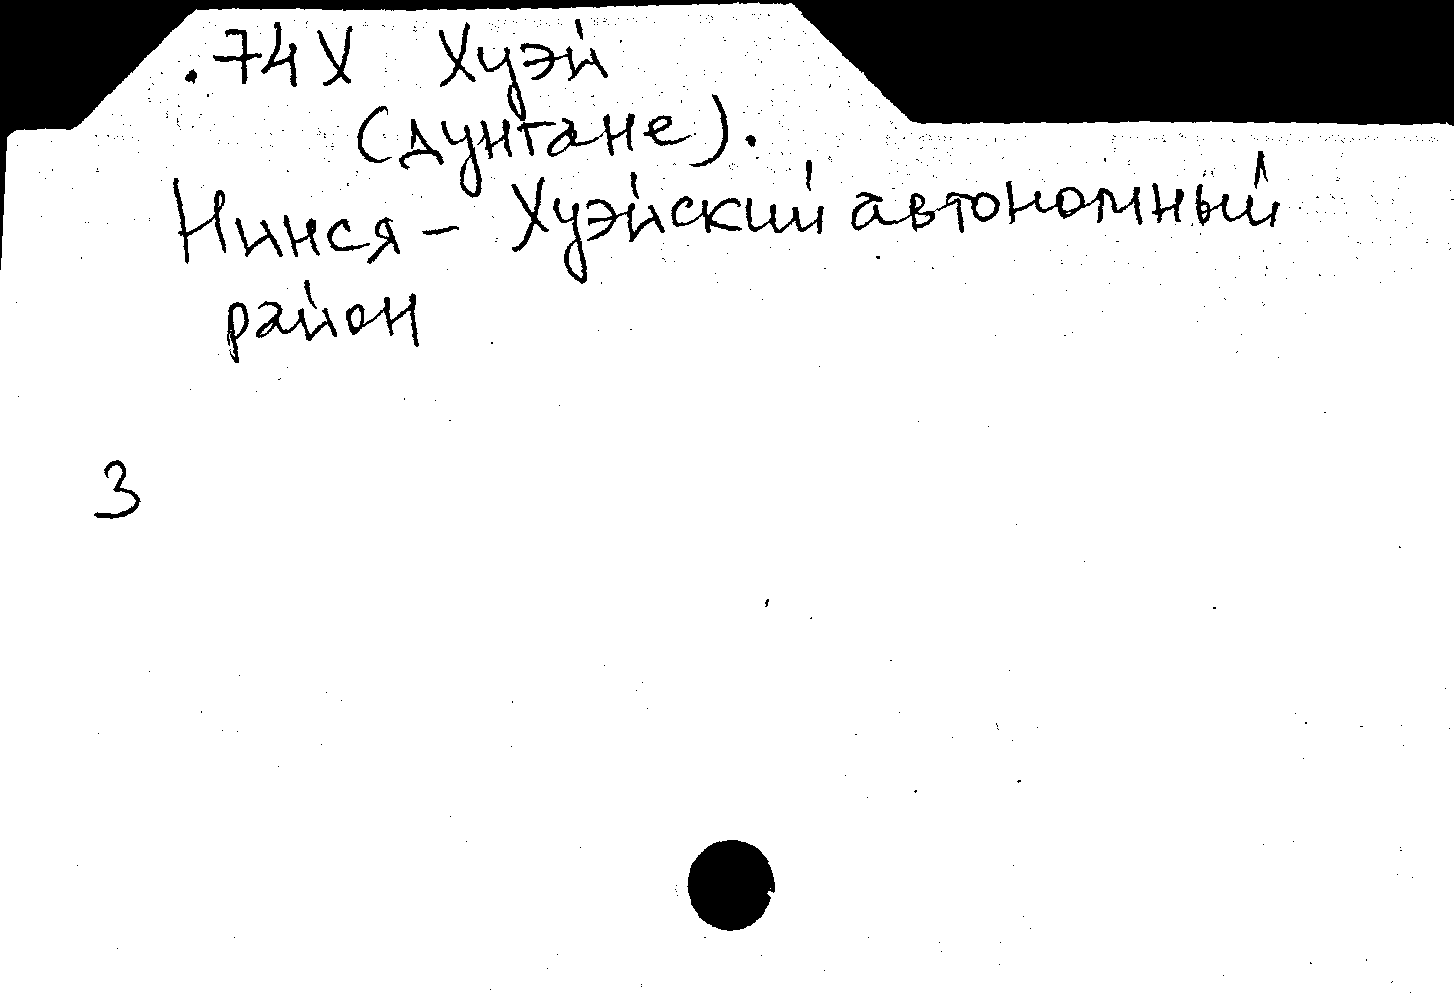 .74Х Хуэй
(дунгане).
Нинся - Хуэйский автономный
район
3